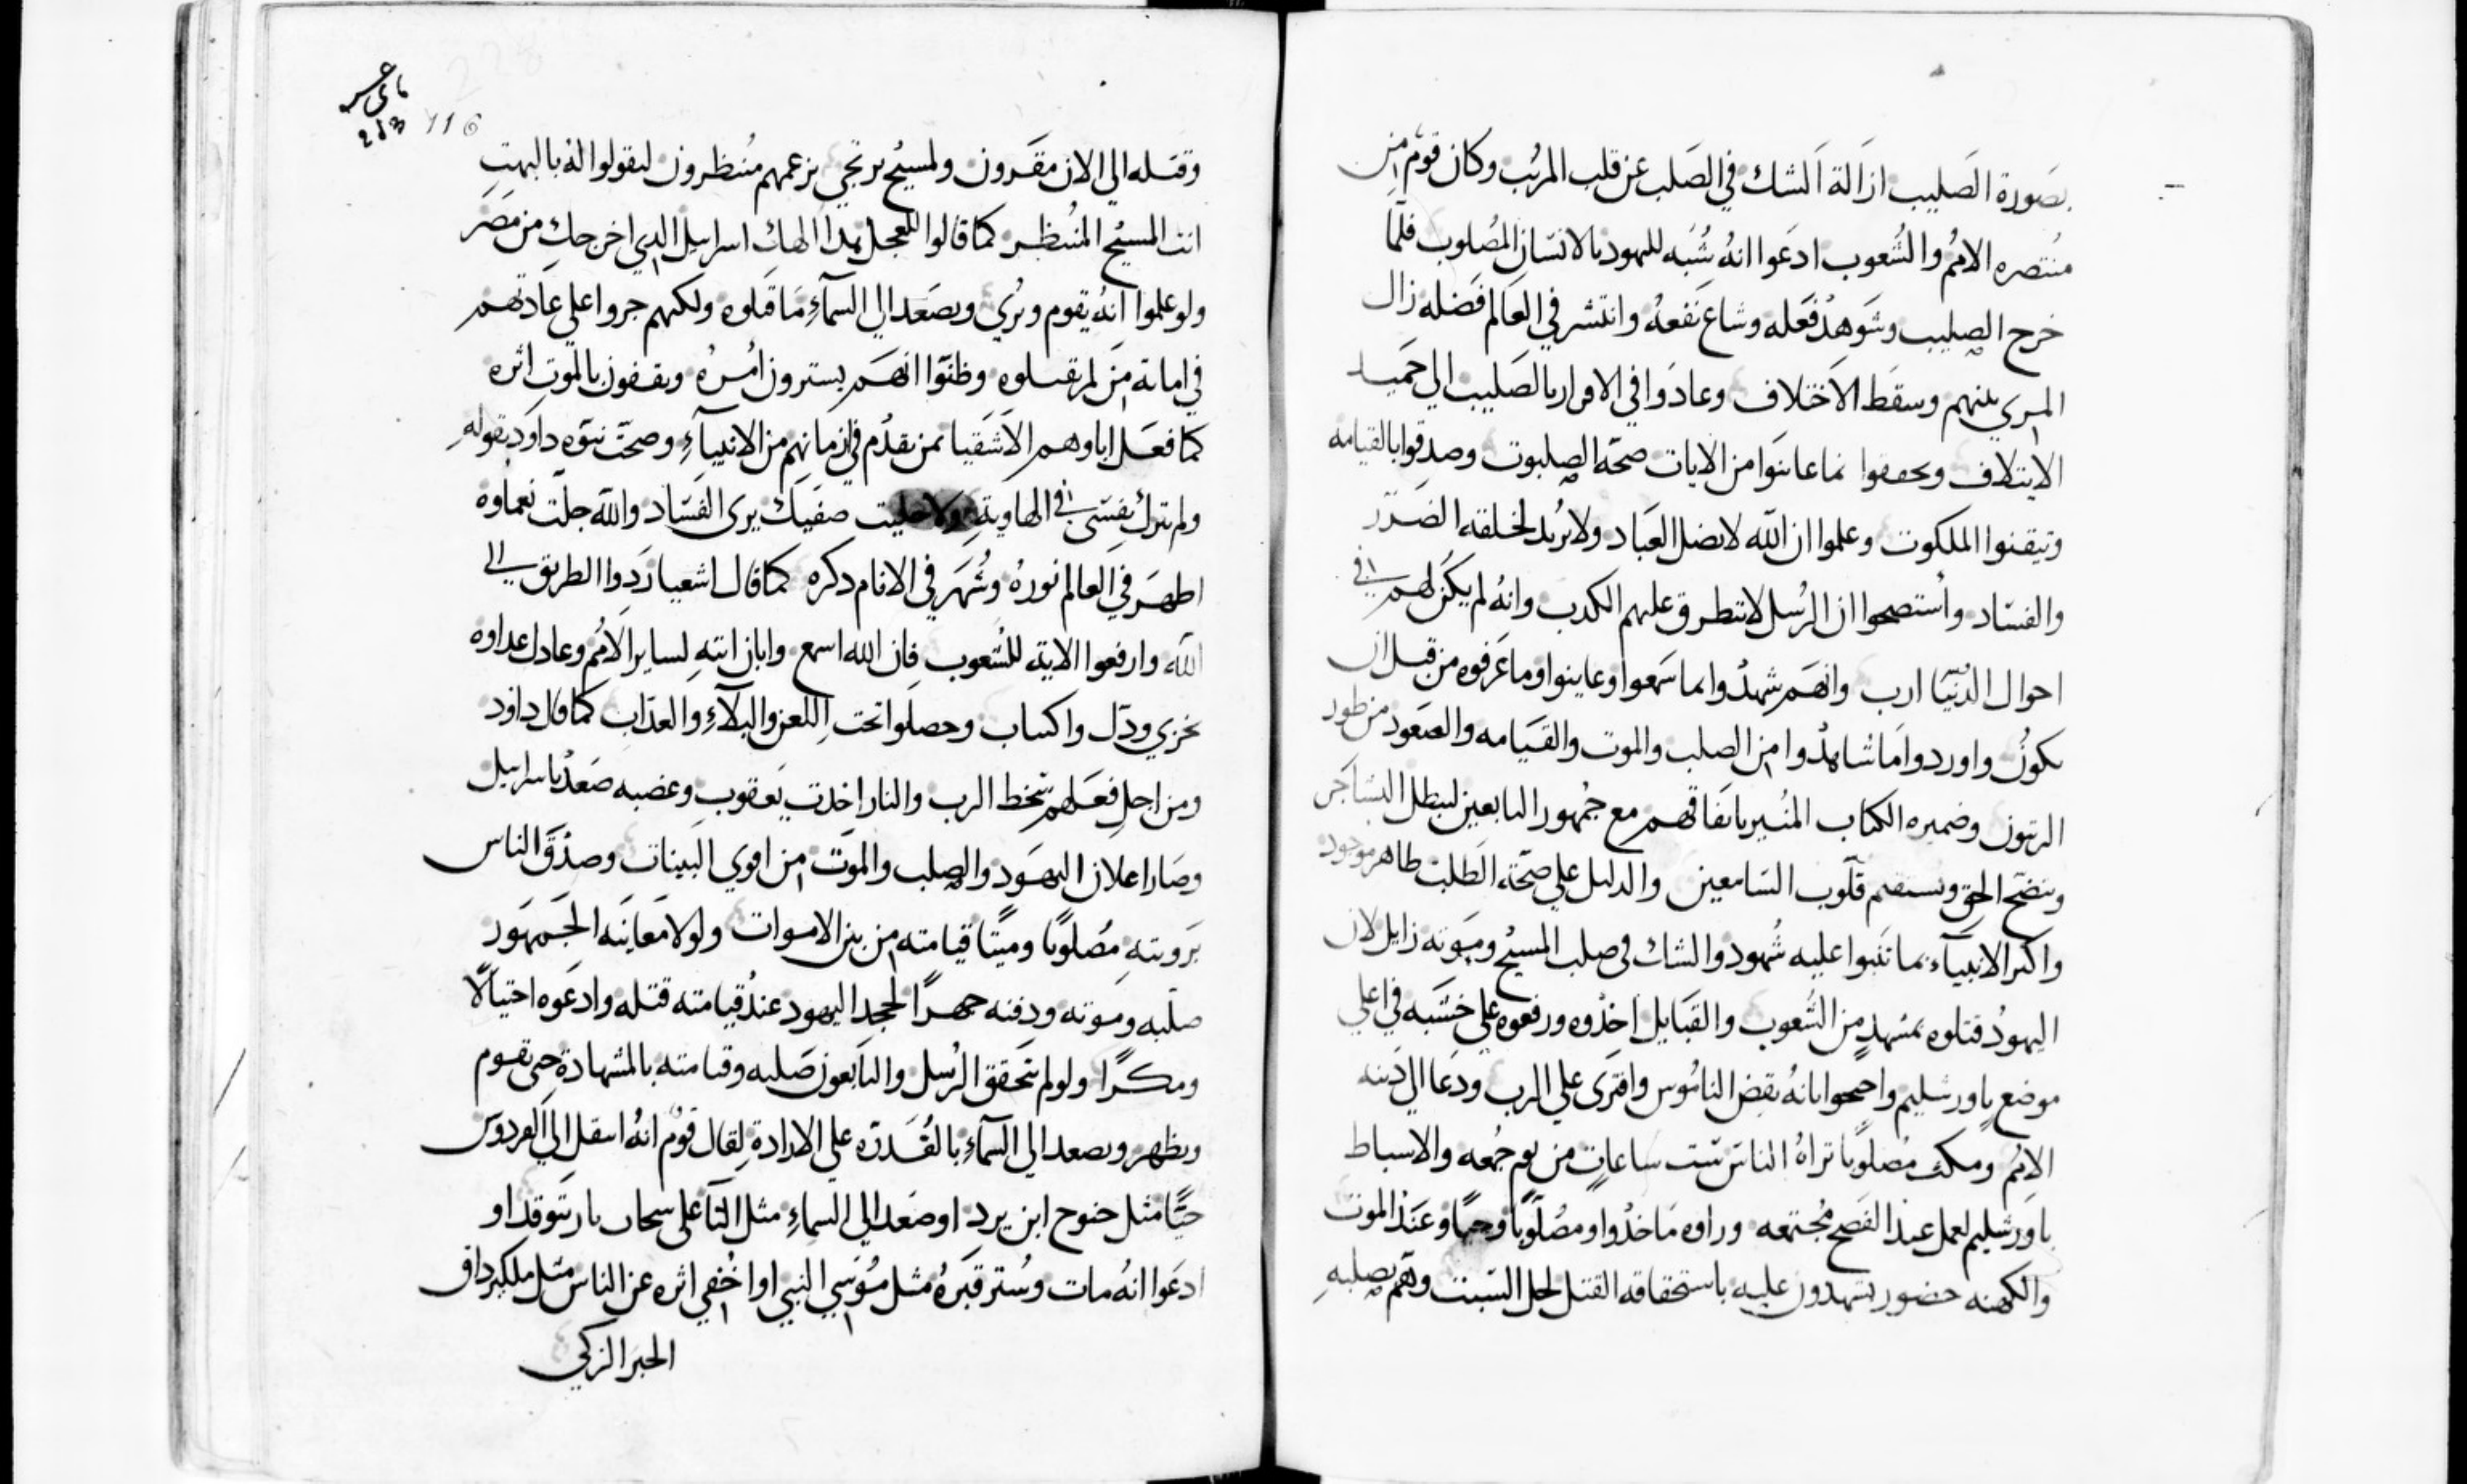 بصورة الصليب ازالة الشك في الصلب عن قلب المريب وكان قوم من
منتصره الامم والشعوب ادعوا انه شبه لليهود بالانسان المصلوب فلما
خرج الصليب وشوهد فعله وشاع نفعه وانتشر في العالم فضله زال
المري بينهم وسقط الاختلاف وعادوا في الاقرار بالصليب الي حميد
الايتلاف وتحققوا بما عاينوا من الايات صحة الصلبوت وصدقوا بالقيامه
وتيقنوا الملكوت وعلموا ان الله لا يضل العباد ولا يريد لخلقه الضرر
والفساد واستصحوا ان الرسل لا يتطرق عليهم الكدب وانه لم يكن لهم في
احوال الدنيا ارب وانهم شهدوا بما سمعوا وعاينوا وما عرفوه من قبل ان
يكون واوردوا ما شاهدوا من الصلب والموت والقيامه والصعود من طور
الزيتون وضميره الكتاب المنير باتفاقهم مع جمهور التابعين ليبطل التشاجر
ويتضح الحق وتستقيم قلوب السامعين والدليل علي صحة الطلب ظاهر موجود
واكثر الانبياء بما تنبوا عليه شهود والشك في صلب المسيح وموته زايل لان
اليهود قتلوه بمشهد من الشعوب والقبايل اخذوه ورفعوه علي خشبه في اعلي
موضع باورشليم واحتجوا بانه نقض الناموس وافتري علي الرب ودعا الي دينه
الامم ومكث مصلوبا تراه الناس ست ساعات من يوم جمعه والاسباط
باورشليم لعمل عيد الفصح مجتمعه وراوه ماخذوا ومصلوبا وحيا وعند الموت
والكهنه حضور يشهدون عليه باستحقاقه القتل لحل السبت وهم بصلبه
116
وقتله الي الان مقرون ولمسيح يرتجي بزعمهم منتظرون ليقولوا له بالبهت
انت المسيح المنتظر كما قالوا للعجل هدا الهك اسراييل الدي اخرجك من مصر
ولو علموا انه يقوم ويري ويصعد الي السماء ما قتلوه ولكنهم جروا علي عادتهم
في اماتة من لم يقبلوه وظنوا انهم يسترون امره ويقفون بالموت اثره
كما فعل اباوهم الاشقيا بمن تقدم في ازمانهم من الانبياء وصحت نبوه داود بقوله
ولم تترك نفسي في الهاوية ولا خليت صفيك يرى الفساد والله جلت نعماوه
اظهر في العالم نوره وشهر في الانام دكره كما قال اشعيا ردوا الطريق الي
الله وارفعوا الاية للشعوب فان الله اسمع وابان ايته لساير الامم وعادل اعداوه
بخزي ودل واكساب وحصلوا تحت اللعن والبلاء والعداب كما قال داود
ومن اجل فعلهم سخط الرب والنار اخدت يعقوب وغضبه صعد باسراييل
وصار اعلان اليهود والصلب والموت من اقوي البينات وصدق الناس
بروييته مصلوبا وميتا قيامته من بين الاموات ولولا معاينه الجمهور
صلبه وموته ودفنه جهرا لجحد اليهود عند قيامته قتله وادعوه احتيالا
ومكرا ولو لم يتحقق الرسل والتابعون صلبه وقيامته بالمشهادة حتى يقوم
ويظهر ويصعد الي السماء بالقدره علي الارادة لقال قوم انه انتقل الي الفردوس
حيا مثل خنوح ابن يرد او صعد الي السماء مثل التا علي سحاب نار تتوقد او
ادعوا انه مات وستر قبره مثل موسي النبي او اخفي اثره عن الناس مثل ملكيزداق
الحبر الزكي